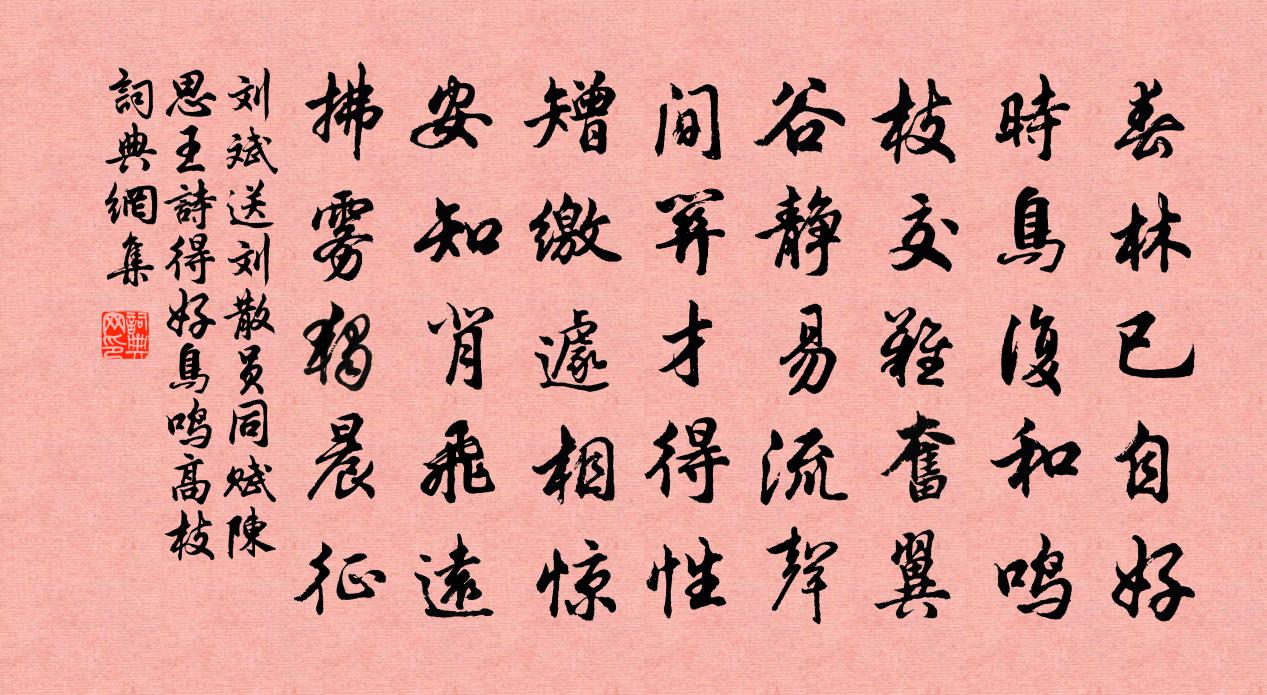 春林已自好
時鳥復和鸣
枝交難奮翼
谷静易流聲
间關才得性
矰繳遽相惊
安知背飛遠
拂雾獨晨征
刘斌送刘散员同赋陳
思王詩得好鳥鸣高枝
詞典網集
詞典
网印